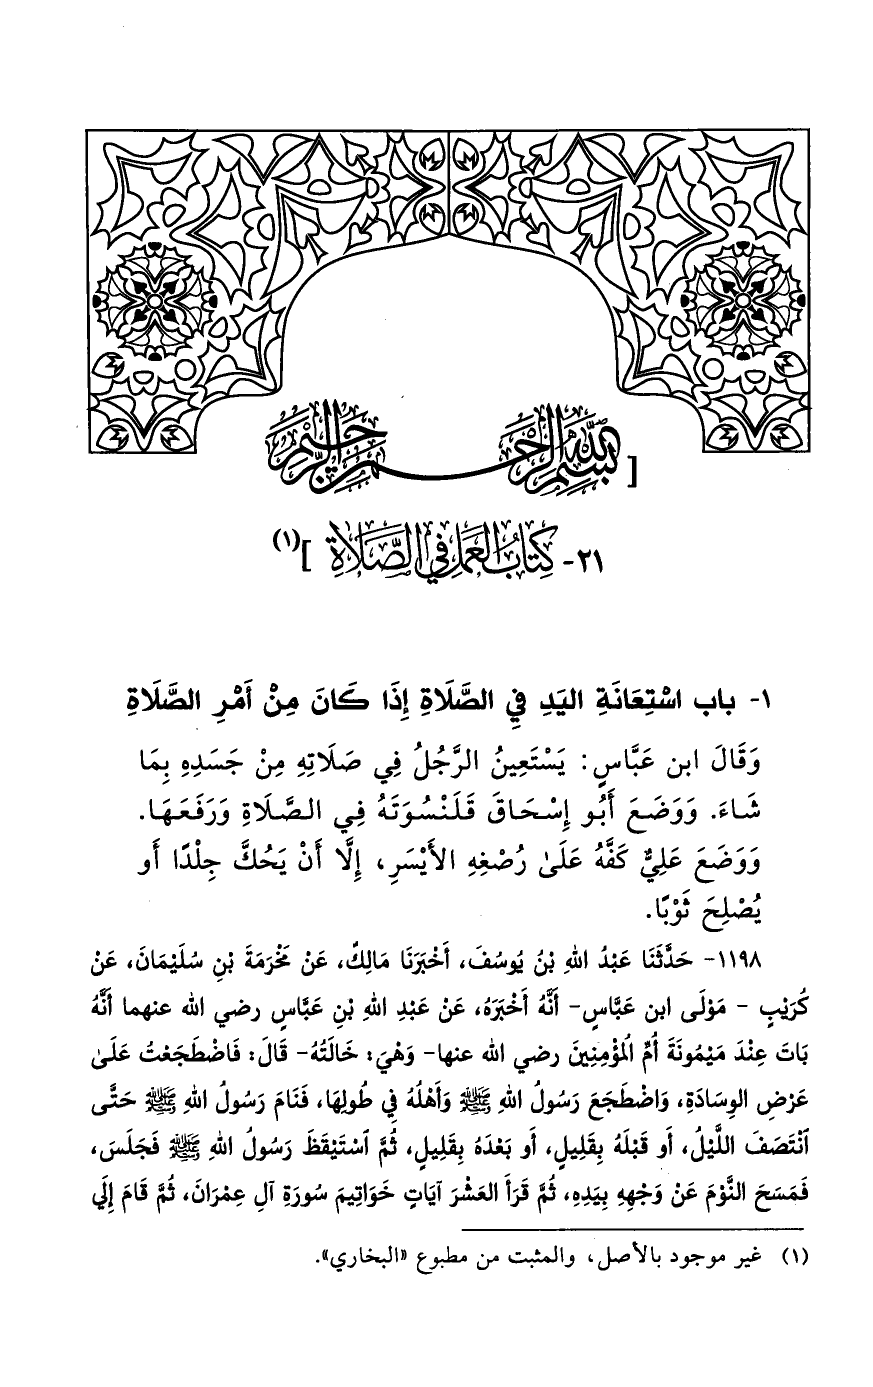 [ بسم الله الرحمن الرحيم
٢١- كِتَابُ العَمَلِ فِي الصَّلَاةِ ](١)
١- باب اسْتِعَانَةِ اليَدِ فِي الصَّلَاةِ إِذَا كَانَ مِنْ أَمْرِ الصَّلَاةِ
وَقَالَ ابن عَبَّاسٍ: يَسْتَعِينُ الرَّجُلُ فِي صَلَاتِهِ مِنْ جَسَدِهِ بِمَا
شَاءَ. وَوَضَعَ أَبُو إِسْحَاقَ قَلَنْسُوَتَهُ فِي الصَّلَاةِ وَرَفَعَهَا.
وَوَضَعَ عَلِيٌّ كَفَّهُ عَلَىٰ رُصْغِهِ الأَيْسَرِ، إِلَّا أَنْ يَحُكَّ جِلْدًا أَو
يُصْلِحَ ثَوْبًا.
١١٩٨- حَدَّثَنَا عَبْدُ اللهِ بْنُ يُوسُفَ، أَخْبَرَنَا مَالِكٌ، عَنْ مَخْرَمَةَ بْنِ سُلَيْمَانَ، عَنْ
كُرَيْبٍ - مَوْلَى ابن عَبَّاسٍ- أَنَّهُ أَخْبَرَهُ، عَنْ عَبْدِ اللهِ بْنِ عَبَّاسٍ رضي الله عنهما أَنَّهُ
بَاتَ عِنْدَ مَيْمُونَةَ أُمِّ المُؤْمِنِينَ رضي الله عنها- وَهْيَ: خَالَتُهُ- قَالَ: فَاضْطَجَعْتُ عَلَىٰ
عَرْضِ الوِسَادَةِ، وَاضْطَجَعَ رَسُولُ اللهِ ﷺ وَأَهْلُهُ فِي طُولِهَا، فَنَامَ رَسُولُ اللهِ ﷺ حَتَّى
ٱنْتَصَفَ اللَّيْلُ، أَو قَبْلَهُ بِقَلِيلٍ، أَو بَعْدَهُ بِقَلِيلٍ، ثُمَّ ٱسْتَيْقَظَ رَسُولُ اللهِ ﷺ فَجَلَسَ،
فَمَسَحَ النَّوْمَ عَنْ وَجْهِهِ بِيَدِهِ، ثُمَّ قَرَأَ العَشْرَ آيَاتٍ خَوَاتِيمَ سُورَةِ آلِ عِمْرَانَ، ثُمَّ قَامَ إِلَى
(١) غير موجود بالأصل، والمثبت من مطبوع «البخاري».